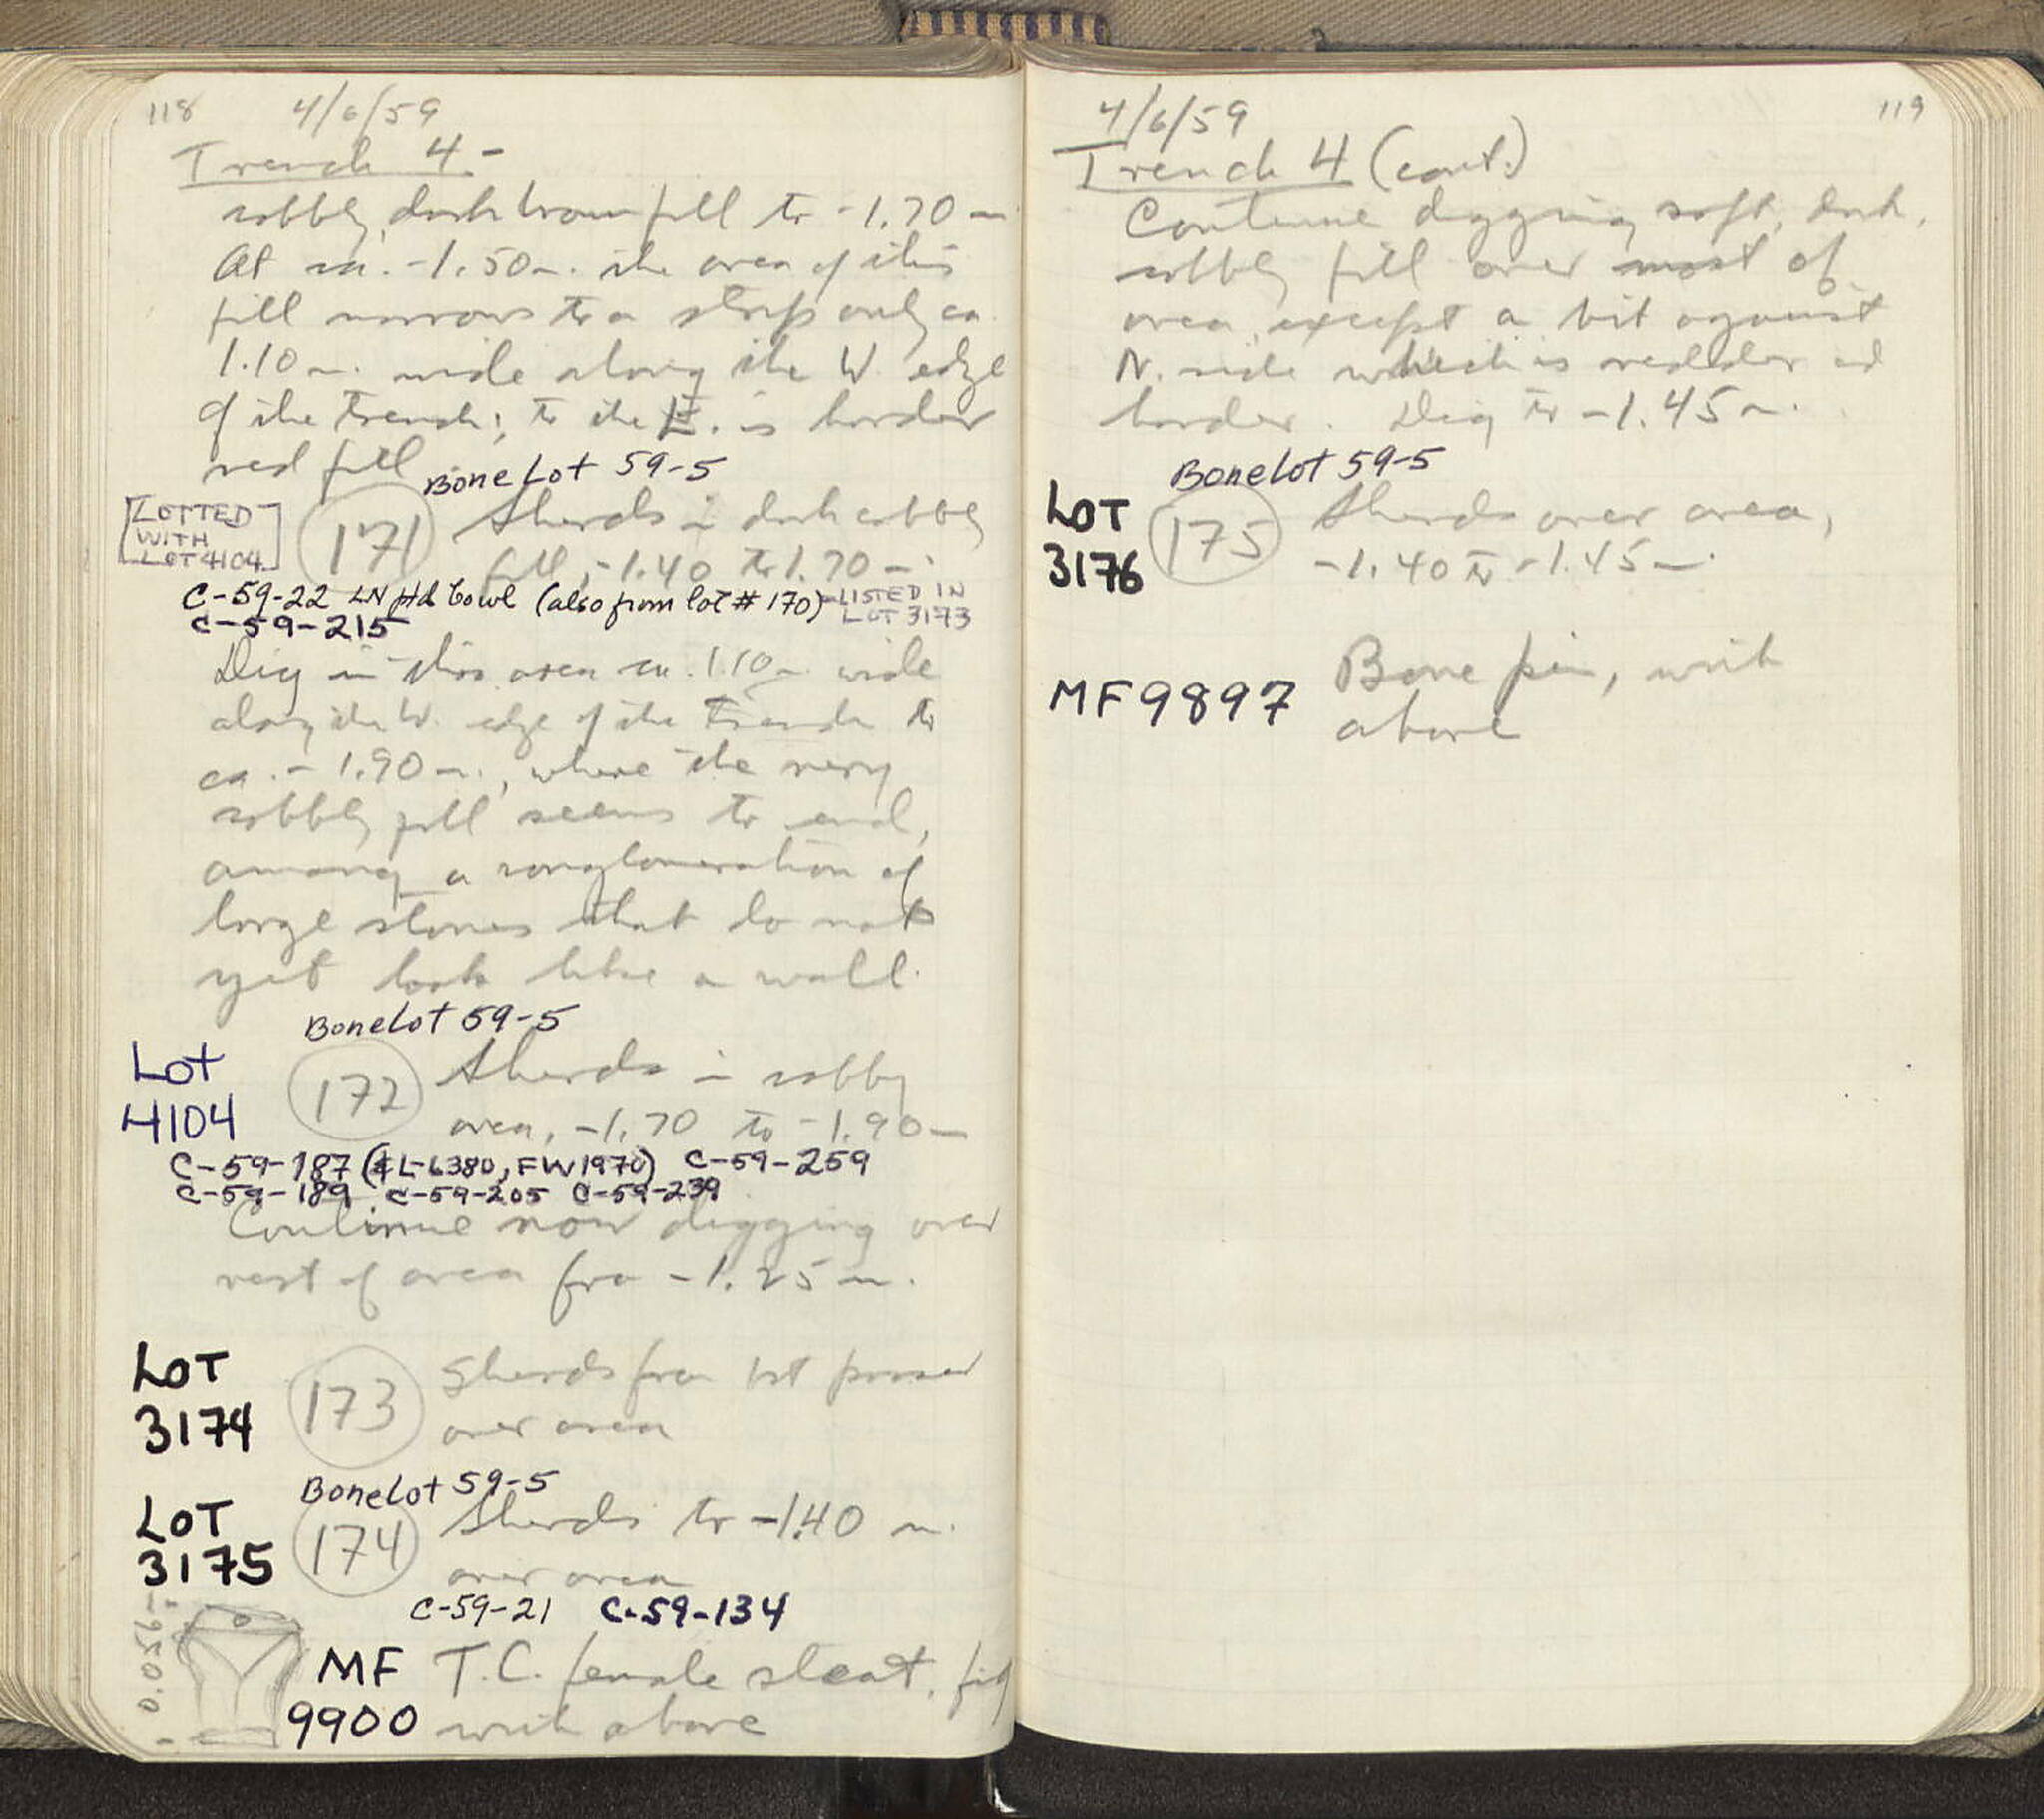 118 4/6/59
Trench 4 -
cobbly, dark brown fill to -1.70 m
At ca. -1.50 m. the area of this
fill narrows to a strip only ca.
1.10 m. wide along the W. edge
of the trench; to the E. is harder
red fill
Bone Lot 59-5
[LOTTED
WITH
LOT 4104]
171 Sherds in dark cobbly
fill, -1.40 to 1.70 m.
C-59-22 LN Ptd bowl (also from lot # 170) - LISTED IN
LOT 3173
C-59-215
Dig in this area ca. 1.10 m. wide
along the W. edge of the trench to
ca. -1.90 m., where the very
cobbly fill seems to end,
among a conglomeration of
large stones that do not
yet look like a wall.
Bone Lot 59-5
Lot
4104
172 Sherds in cobbly
area, -1.70 to -1.90 m
C-59-187 (& L-6380, FW1970) C-59-259
C-59-189 C-59-205 C-59-239
Continue now digging over
rest of area from -1.25 m.
LOT
3174
173 Sherds from 1st passes
over area
Bone Lot 59-5
LOT
3175
174 Sherds to -1.40 m.
over area
C-59-21 C-59-134
0.056
MF
9900
T.C. female steat. fig
with above
4/6/59 119
Trench 4 (cont.)
Continue digging soft, dark,
cobbly fill over most of
area, except a bit against
N. side which is redder and
harder. Dig to -1.45 m.
Bone Lot 59-5
LOT
3176
175 Sherds over area,
-1.40 to -1.45 m.
MF 9897 Bone pin, with
above